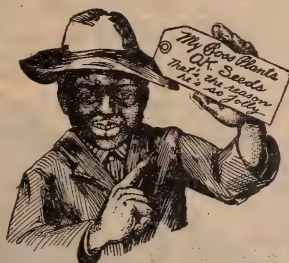 My Boss Plants
OK Seeds
That's the reason
he's so jolly